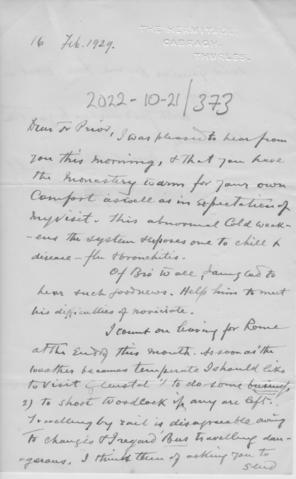 THE HERMITAGE,
CABRAGH,
THURLES.
16 Feb. 1929.
2022-10-21/373
Dear Fr Prior,
I was pleased to hear from
you this morning, & that you have
the Monastery warm for your own
Comfort as well as in expectation of
My visit. This abnormal Cold weak-
ens the system & exposes one to chill &
disease - flu & bronchitis.
Of Bro we all, I am glad to
hear such good news. Help him to meet
his difficulties of novitiate.
I count on leaving for Rome
at the End of this month. As soon as the
weather becomes temperate I should like
to visit Glenstal 1) to do some business
2) to shoot woodcock if any are left.
Travelling by rail is disagreeable owing
to changes & I regard Bus travelling dan-
gerous. I think then of asking you to
send